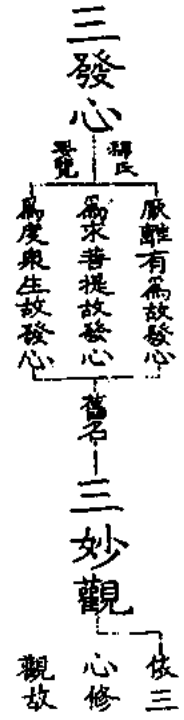 三發心
釋氏
要覽
厭離有為故發心
為求菩提故發心
為度眾生故發心
舊名
三妙觀
依三
心修
觀故